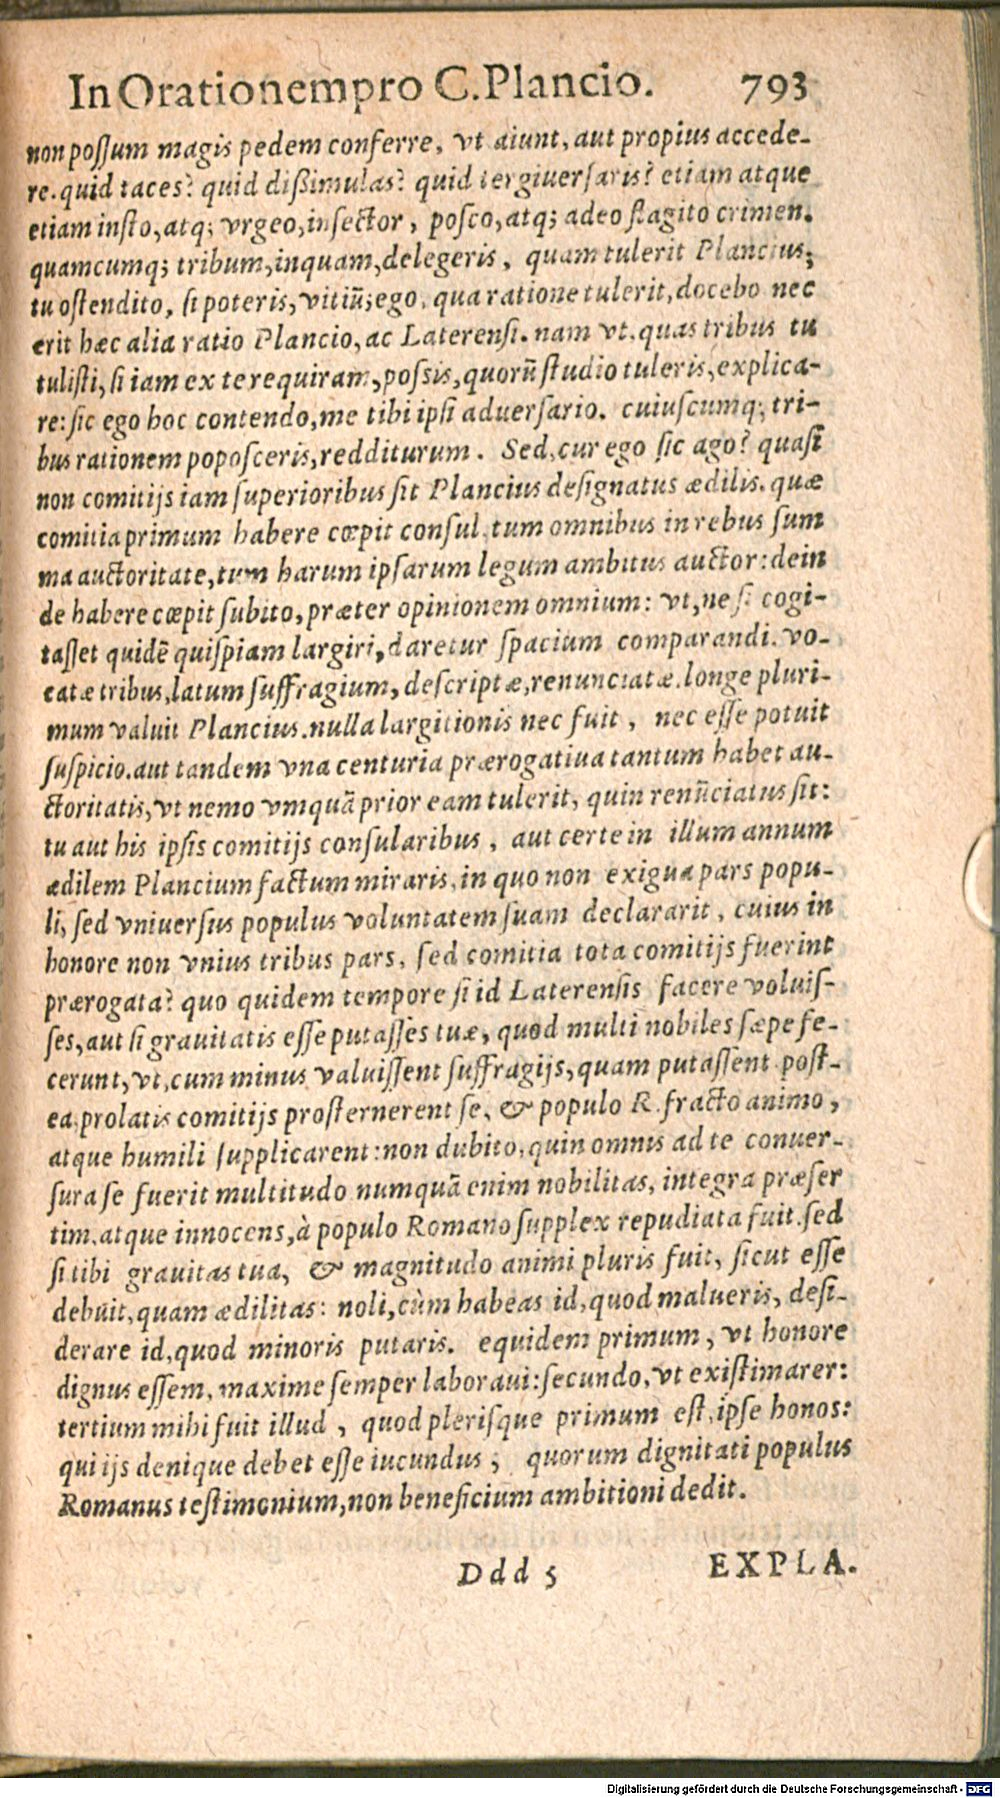 In Orationem pro C. Plancio. 793
non possum magis pedem conferre, vt aiunt, aut propius accede-
re. quid taces? quid dißimulas? quid tergiuersaris? etiam atque
etiam insto, atq; vrgeo, insector, posco, atq; adeo flagito crimen.
quamcumq; tribum, inquam, delegeris, quam tulerit Plancius;
tu ostendito, si poteris, vitiū; ego, qua ratione tulerit, docebo nec
erit hæc alia ratio Plancio, ac Laterensi. nam vt, quas tribus tu
tulisti, si iam ex te requiram, possis, quorū studio tuleris, explica-
re: sic ego hoc contendo, me tibi ipsi aduersario. cuiuscumq; tri-
bus rationem poposceris, redditurum. Sed, cur ego sic ago? quasi
non comitijs iam superioribus sit Plancius designatus ædilis. quæ
comitia primum habere cœpit consul, tum omnibus in rebus sum
ma auctoritate, tum harum ipsarum legum ambitus auctor: dein
de habere cœpit subito, præter opinionem omnium: vt, ne si cogi-
tasset quidē quispiam largiri, daretur spacium comparandi. vo-
catæ tribus, latum suffragium, descriptæ, renunciatæ. longe pluri-
mum valuit Plancius. nulla largitionis nec fuit, nec esse potuit
suspicio. aut tandem vna centuria prærogatiua tantum habet au-
ctoritatis, vt nemo vmquā prior eam tulerit, quin renūciatus sit:
tu aut his ipsis comitijs consularibus, aut certe in illum annum
ædilem Plancium factum miraris, in quo non exigua pars popu-
li, sed vniuersus populus voluntatem suam declararit, cuius in
honore non vnius tribus pars, sed comitia tota comitijs fuerint
prærogata? quo quidem tempore si id Laterensis facere voluis-
ses, aut si grauitatis esse putasses tuæ, quod multi nobiles sæpe fe-
cerunt, vt, cum minus valuissent suffragijs, quam putassent post-
ea, prolatis comitijs prosternerent se, & populo R. fracto animo,
atque humili supplicarent: non dubito, quin omnis ad te conuer-
sura se fuerit multitudo numquā enim nobilitas, integra præser
tim, atque innocens, à populo Romano supplex repudiata fuit. sed
si tibi grauitas tua, & magnitudo animi pluris fuit, sicut esse
debuit, quam ædilitas: noli, cùm habeas id, quod malueris, desi-
derare id, quod minoris putaris. equidem primum, vt honore
dignus essem, maxime semper laboraui: secundo, vt existimarer:
tertium mihi fuit illud, quod plerisque primum est, ipse honos:
qui ijs denique debet esse iucundus; quorum dignitati populus
Romanus testimonium, non beneficium ambitioni dedit.
Ddd 5 EXPLA.
Digitalisierung gefördert durch die Deutsche Forschungsgemeinschaft - DFG